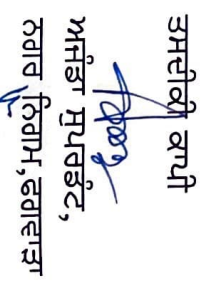 ਤਸਦੀਕੀ ਕਾਪੀ
ਸੁਪਰਡੰਟ,
ਨਗਰ ਨਿਗਮ,ਫਗਵਾੜਾ